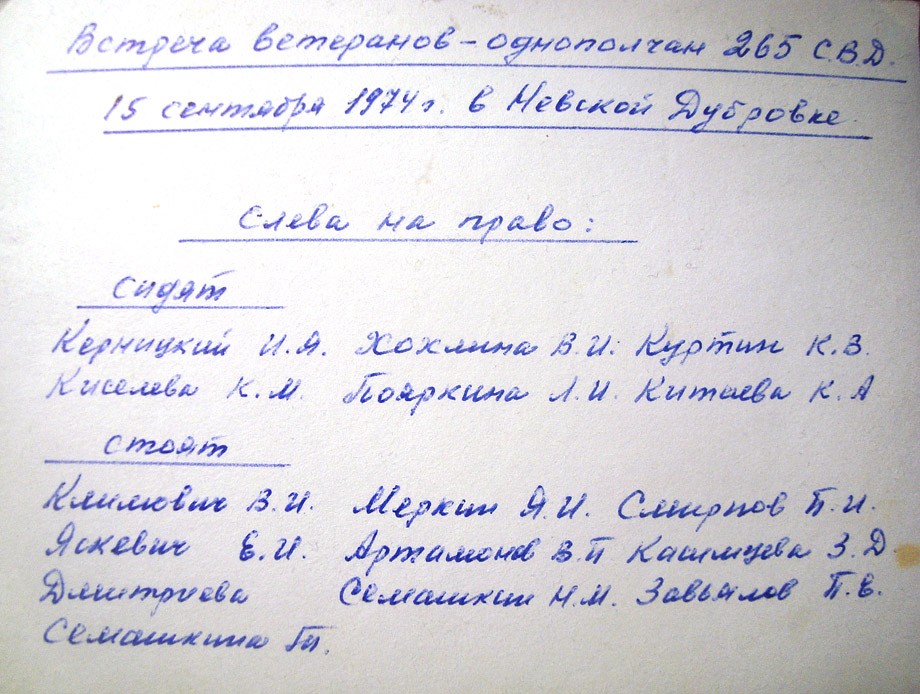 Встреча ветеранов - однополчан 265 С.В.Д.
15 сентября 1974 г. в Невской Дубровке.
Слева на право:
сидят
Керницкий И.Я. Хохлина В.И. Куртин К.В.
Киселева К.М. Пояркина Л.И. Китаева К.А
стоят
Климович В.И. Меркин Я.И. Смирнов П.И.
Яскевич Е.И. Артамонов В.П Казимцева З.Д
Дмитриева Семашкин Н.М. Завьялов П.Е.
Семашкина